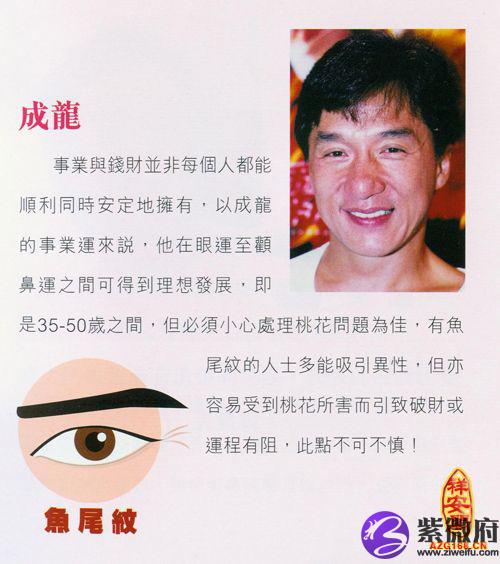 成龍
事業與錢財並非每個人都能
順利同時安定地擁有，以成龍
的事業運來説，他在眼運至顴
鼻運之間可得到理想發展，即
是35-50歲之間，但必須小心處理桃花問題為佳，有魚
尾紋的人士多能吸引異性，但亦
容易受到桃花所害而引致破財或
運程有阻，此點不可不慎！
魚尾紋
祥安
AZG168.CN
紫微府
www.ziweifu.com